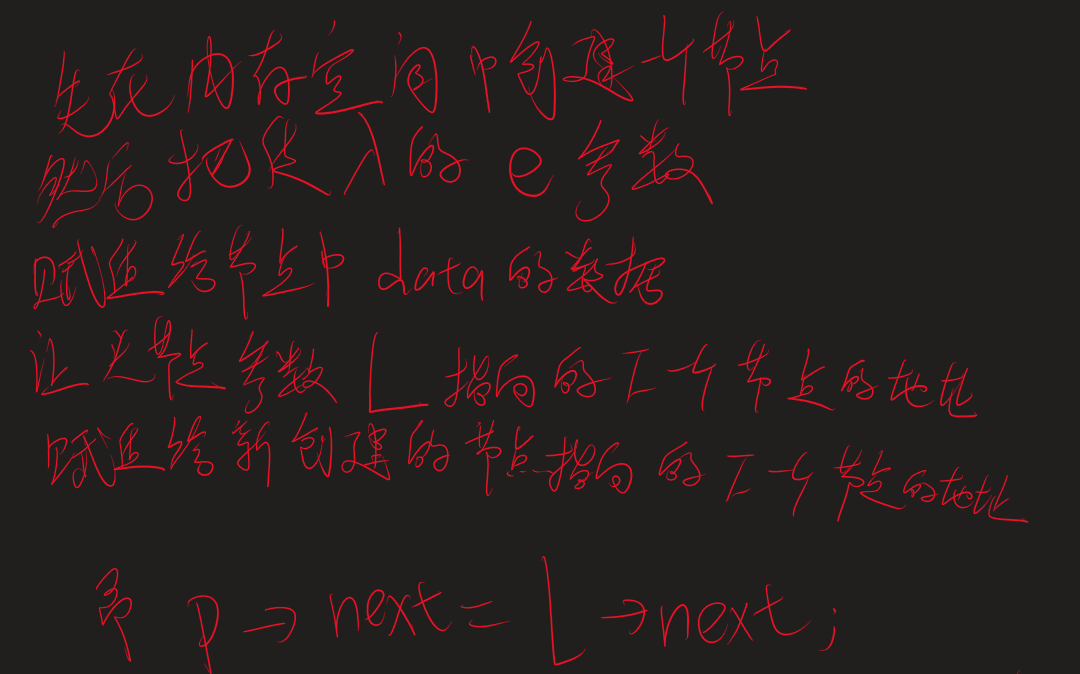 先在内存空间中创建一个节点
然后把传入的e参数
赋值给节点中data的数据
让头节点参数L指向的下一个节点的地址
赋值给新创建的节点指向的下一个节点的地址
即p→next=L→next;